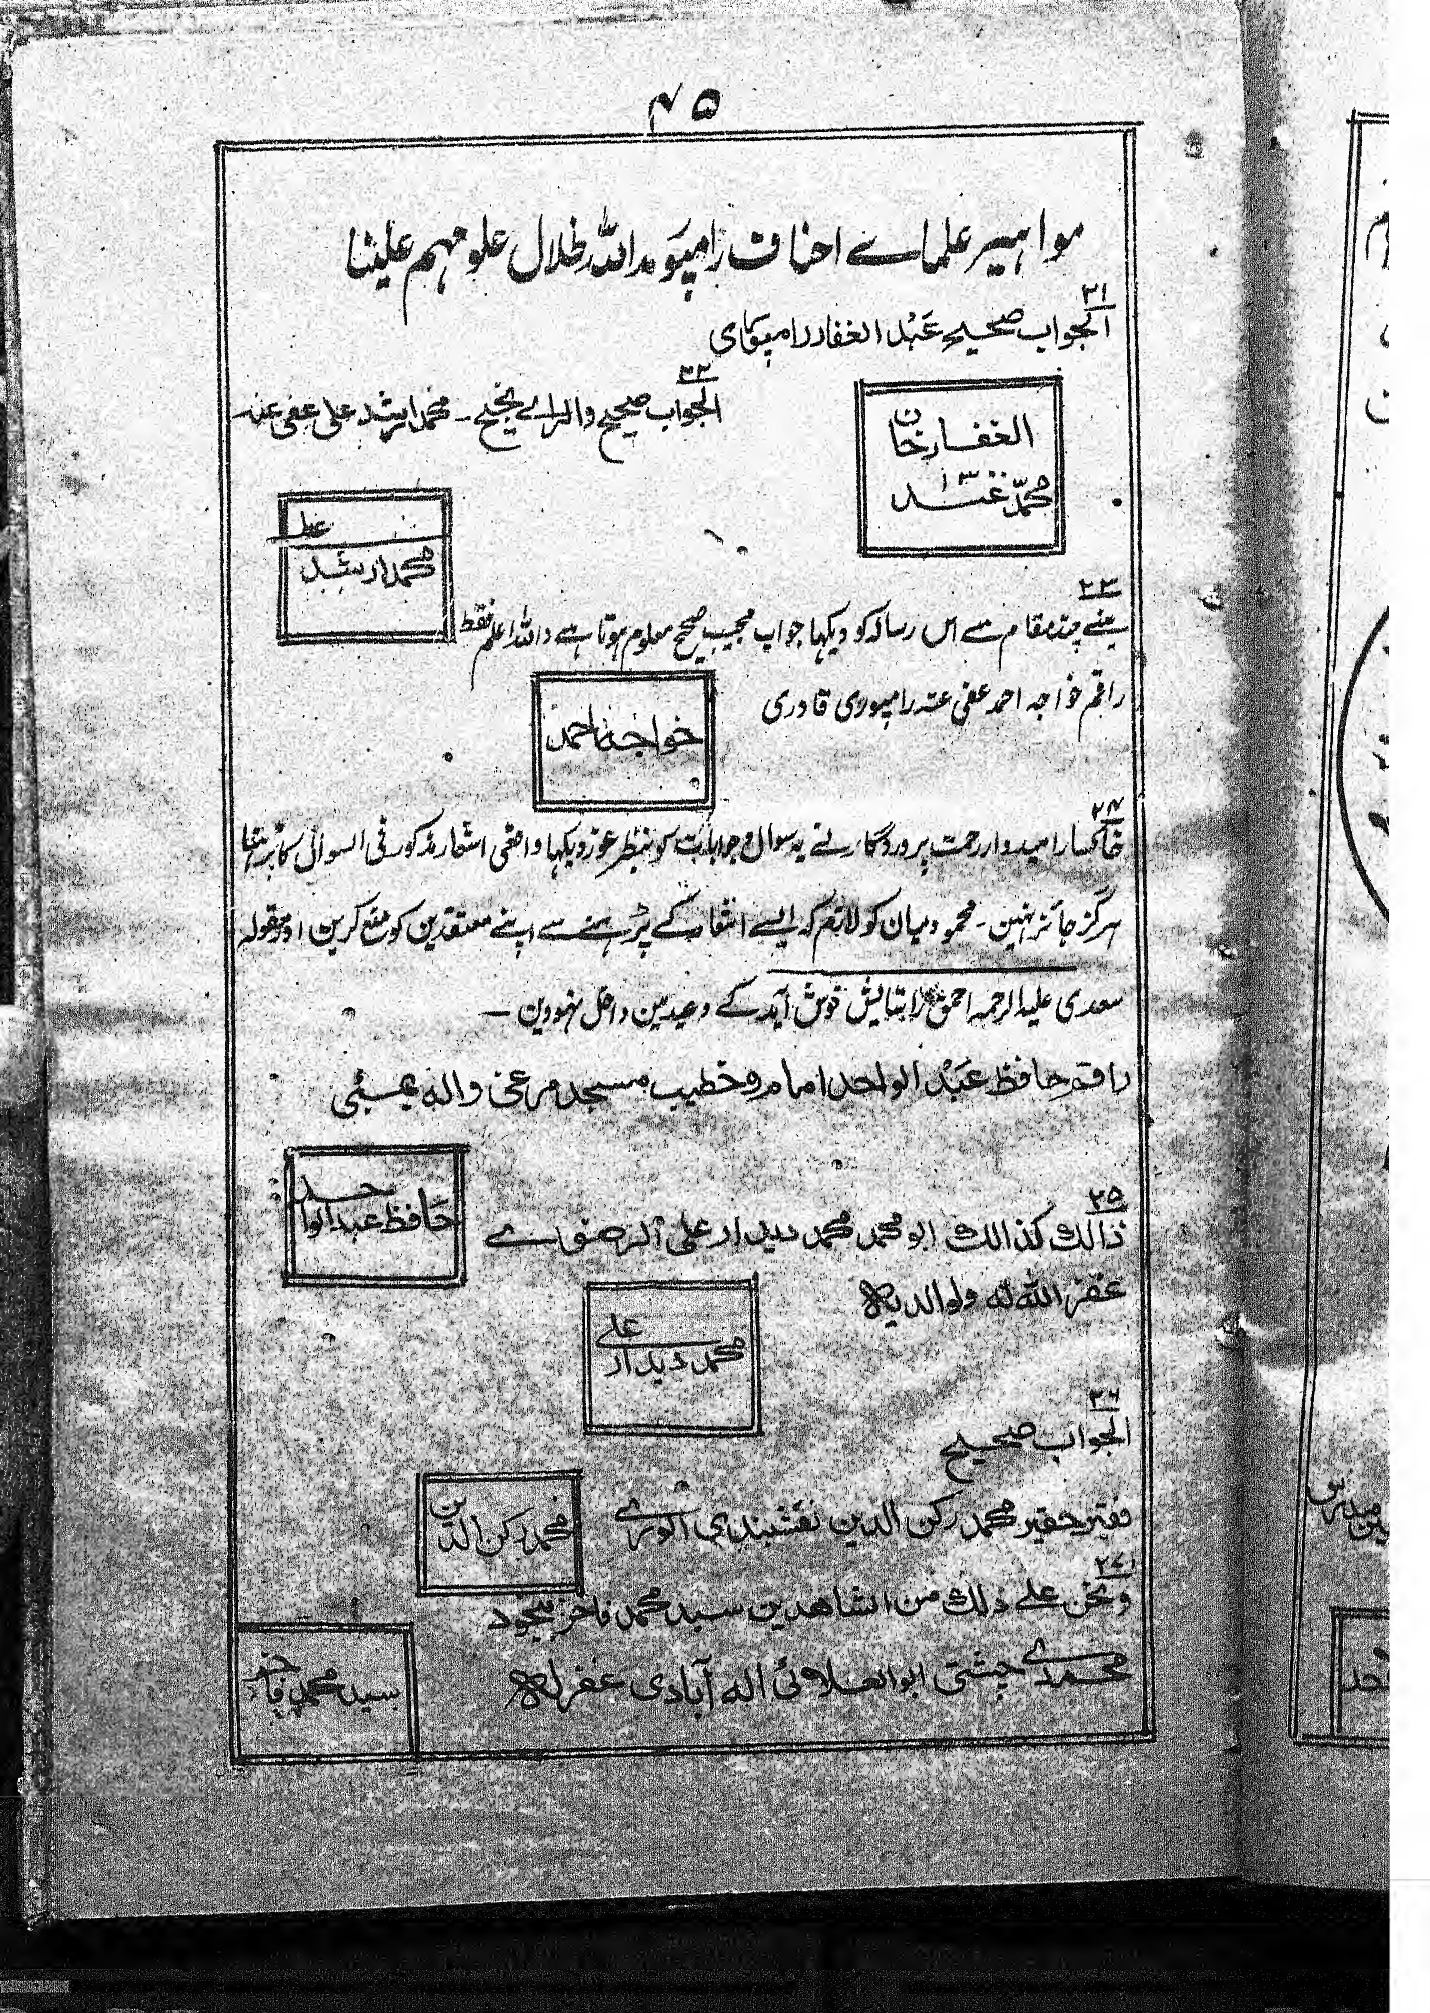 ۴۵
مواہیر علمائے احناف رامپور مد اللہ ظلال علومہم علینا
۲۱
الجواب صحیح عبد الغفار رامپوری
الغفار خان
محمد عبد
۲۲
الجواب صحیح والرائے نجیح ـ محمد ارشد علی عفی عنہ
علی
محمد ارشد
۲۳
مینے چند مقام سے اس رسالہ کو دیکہا جواب مجیب صحیح معلوم ہوتا ہے واللہ اعلم فقط
راقم خواجہ احمد عفی عنہ رامپوری قادری
خواجہ احمد
۲۴
خاکسار امیدوار رحمت پروردگار نے یہ سوال و جوابات کو بنظر غور دیکہا واقعی اشعار مذکور فی السوال کا پڑہنا
ہرگز جائز نہین ـ محمود میان کو لازم کہ ایسے اشعار کے پڑہنے سے اپنے معتقدین کو منع کرین اور مقولہ
سعدی علیہ الرحمہ احمق را ستایش خوش آید کے وعید مین داخل نہووین ـ
راقم حافظ عبد الواحد امام و خطیب مسجد مرغی والہ بمبئی
حافظ عبد الواحد
۲۵
ذالک کذالک ابو محمد محمد دیدار علی الرضوے
غفر اللہ لہ ولوالدیہ
علے
محمد دیدار
۲۶
الجواب صحیح
فقیر حقیر محمد رکن الدین نقشبندی الورے
محمد رکن الدین
۲۷
و نحن علے ذلک من الشاهدین سید محمد فاخر بیخود
محمدے چشتی ابوالعلائی الہ آبادی غفرلہ
سید محمد فاخر